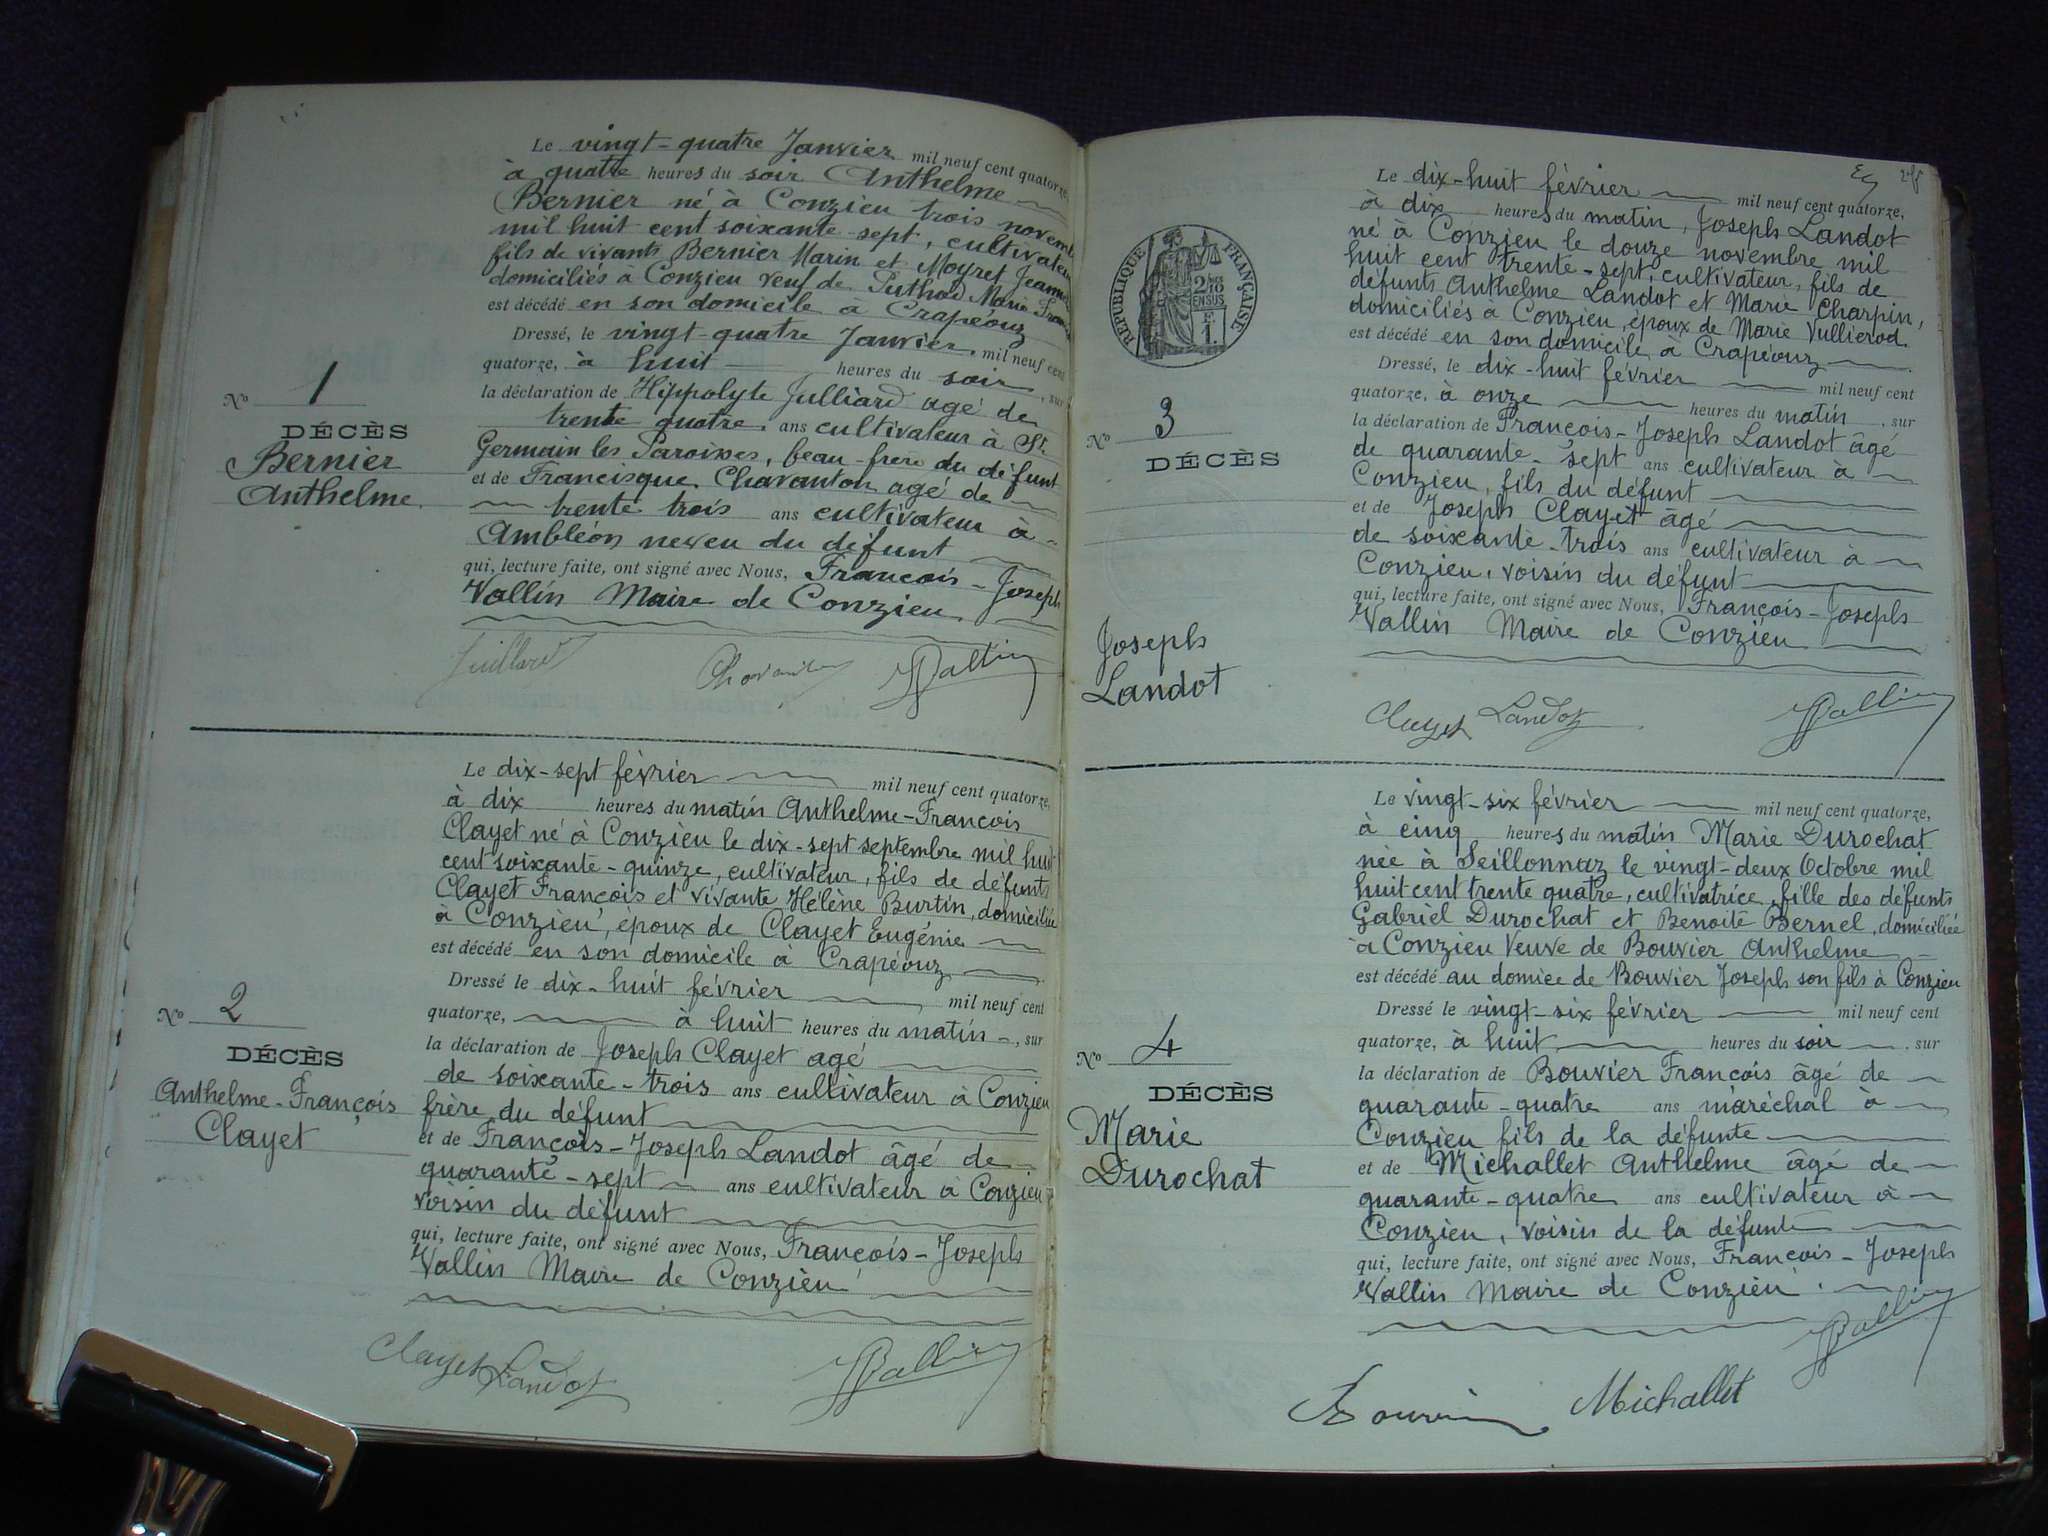 Le vingt-quatre Janvier mil neuf cent quatorze,
à quatre heures du soir Anthelme
Bernier né à Conzieu trois novem
mil huit cent soixante-sept, cultivateur
fils de vivants Bernier Marin et Moyret Jeanne
domiciliés à Conzieu veuf de Puthod Marie
est décédé en son domicile à Crapéouz
Dressé, le vingt-quatre Janvier, mil neuf cent
quatorze, à huit heures du soir, sur
la déclaration de Hippolyte Julliard agé de
trente quatre ans cultivateur à St.
Germain les Paroisses, beau-frère du défunt
et de Francisque Chavanton agé de
trente trois ans cultivateur à
Ambléon neveu du défunt
qui, lecture faite, ont signé avec Nous, François-Joseph
Vallin Maire de Conzieu
Nº 1
DÉCÈS
Bernier
Anthelme
Juillard Vallin
Le dix-sept février mil neuf cent quatorze,
à dix heures du matin Anthelme-François
Clayet né à Conzieu le dix-sept septembre mil huit
cent soixante-quinze, cultivateur, fils de défunts
Clayet François et vivante Hélène Burtin, domiciliée
à Conzieu, époux de Clayet Eugénie
est décédé en son domicile à Crapéouz
Dressé le dix-huit février, mil neuf cent
quatorze, à huit heures du matin, sur
la déclaration de Joseph Clayet agé
de soixante-trois ans cultivateur à Conzieu
frère du défunt
et de François-Joseph Landot âgé de
quarante-sept ans cultivateur à Conzieu
voisin du défunt
qui, lecture faite, ont signé avec Nous, François-Joseph
Vallin Maire de Conzieu
Nº 2
DÉCÈS
Anthelme-François
Clayet
Clayet Landot Vallin
Le dix-huit février mil neuf cent quatorze,
à dix heures du matin, Joseph Landot
né à Conzieu le douze novembre mil
huit cent trente-sept cultivateur, fils de
défunts Anthelme Landot et Marie Charpin,
domiciliés à Conzieu, époux de Marie Vullierod
est décédé en son domicile à Crapéouz
Dressé, le dix-huit février mil neuf cent
quatorze, à onze heures du matin, sur
la déclaration de François-Joseph Landot âgé
de quarante-sept ans cultivateur à
Conzieu, fils du défunt
et de Joseph Clayet âgé
de soixante-trois ans cultivateur à
Conzieu, voisin du défunt
qui, lecture faite, ont signé avec Nous, François-Joseph
Vallin Maire de Conzieu
RÉPUBLIQUE FRANÇAISE
EN SUS
Nº 3
DÉCÈS
Joseph
Landot
Clayet Landot Vallin
Le vingt-six février mil neuf cent quatorze,
à cinq heures du matin Marie Durochat
née à Seillonnaz le vingt-deux Octobre mil
huit cent trente quatre, cultivatrice, fille des défunts
Gabriel Durochat et Benoite Bernel, domiciliée
à Conzieu Veuve de Bouvier Anthelme
est décédé au domice de Bouvier Joseph son fils à Conzieu
Dressé le vingt-six février mil neuf cent
quatorze, à huit heures du soir, sur
la déclaration de Bouvier François âgé de
quarante-quatre ans maréchal à
Conzieu fils de la défunte
et de Michallet Anthelme âgé de
quarante-quatre ans cultivateur à
Conzieu, voisin de la défunte
qui, lecture faite, ont signé avec Nous, François-Joseph
Vallin Maire de Conzieu.
Nº 4
DÉCÈS
Marie
Durochat
Vallin
Bouvier Michallet